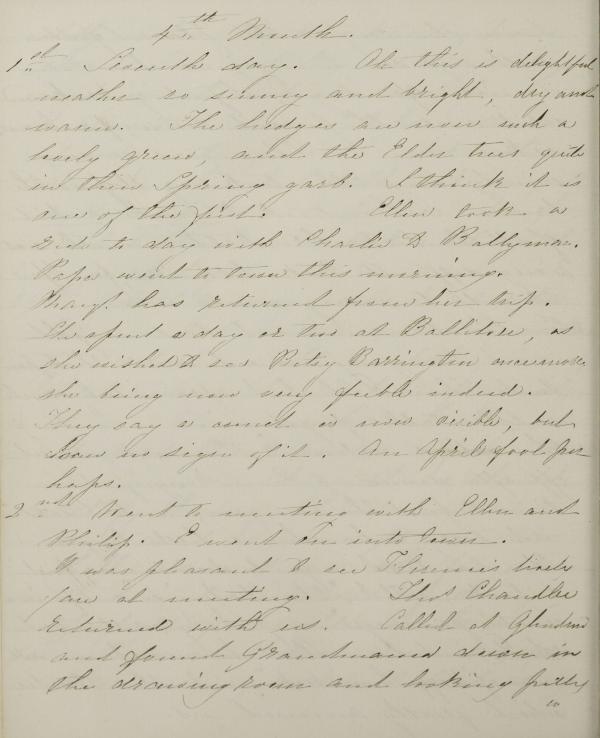 4th Month.
1st Seventh day. Oh this is delightful
weather so sunny and bright, dry and
warm. The hedges are now such a
lovely green, and the Elder trees quite
in their Spring garb. I think it is
one of the first. Ellen took a
ride to day with Charlie to Ballyman.
Papa went to town this morning.
Margt. has returned from her trip.
She spent a day or two at Ballitore, as
she wished to see Betsy Barrington once more
she being now very feeble indeed.
They say a comet is now visible, but
I saw no sign of it. An April fool per
haps.
2nd Went to meeting with Ellen and
Philip. E went on into town.
It was pleasant to see
face at meeting. Thos Chandlee
returned with us. Called at
and found Grandmama down in
the drawingroom and looking pretty